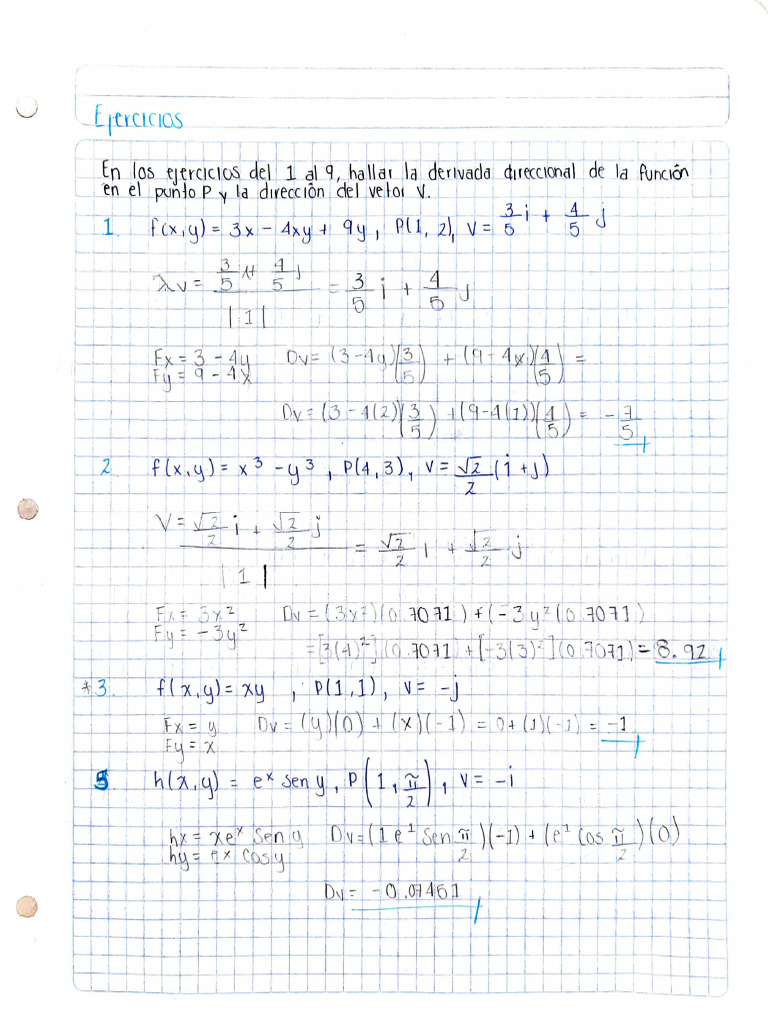 Ejercicios
En los ejercicios del 1 al 9, hallar la derivada direccional de la función
en el punto P y la dirección del vetor V.
1. f(x,y) = 3x - 4xy + 9y, P(1, 2), V = 3/5 i + 4/5 j
λv = (3/5 i + 4/5 j) / |1| = 3/5 i + 4/5 j
Fx = 3 - 4y Dv = (3-4y)(3/5) + (9-4x)(4/5) =
Fy = 9 - 4x
Dv = (3-4(2))(3/5) + (9-4(1))(4/5) = -7/5
2. f(x,y) = x³ - y³, P(4,3), V = √2/2 (i + j)
V = (√2/2 i + √2/2 j) / |1| = √2/2 i + √2/2 j
Fx = 3x² Dv = (3x²)(0.7071) + (-3y²(0.7071)
Fy = -3y²
= [3(4)²](0.7071) + [-3(3)²](0.7071) = 8.92
*3. f(x,y) = xy, P(1,1), V = -j
Fx = y Dv = (y)(0) + (x)(-1) = 0 + (1)(-1) = -1
Fy = x
5 h(x,y) = eˣ sen y, P(1, π/2), V = -i
hx = xeˣ Sen y Dv = (1e¹ Sen π/2)(-1) + (e¹ Cos π/2)(0)
hy = eˣ Cos y
Dv = -0.07461